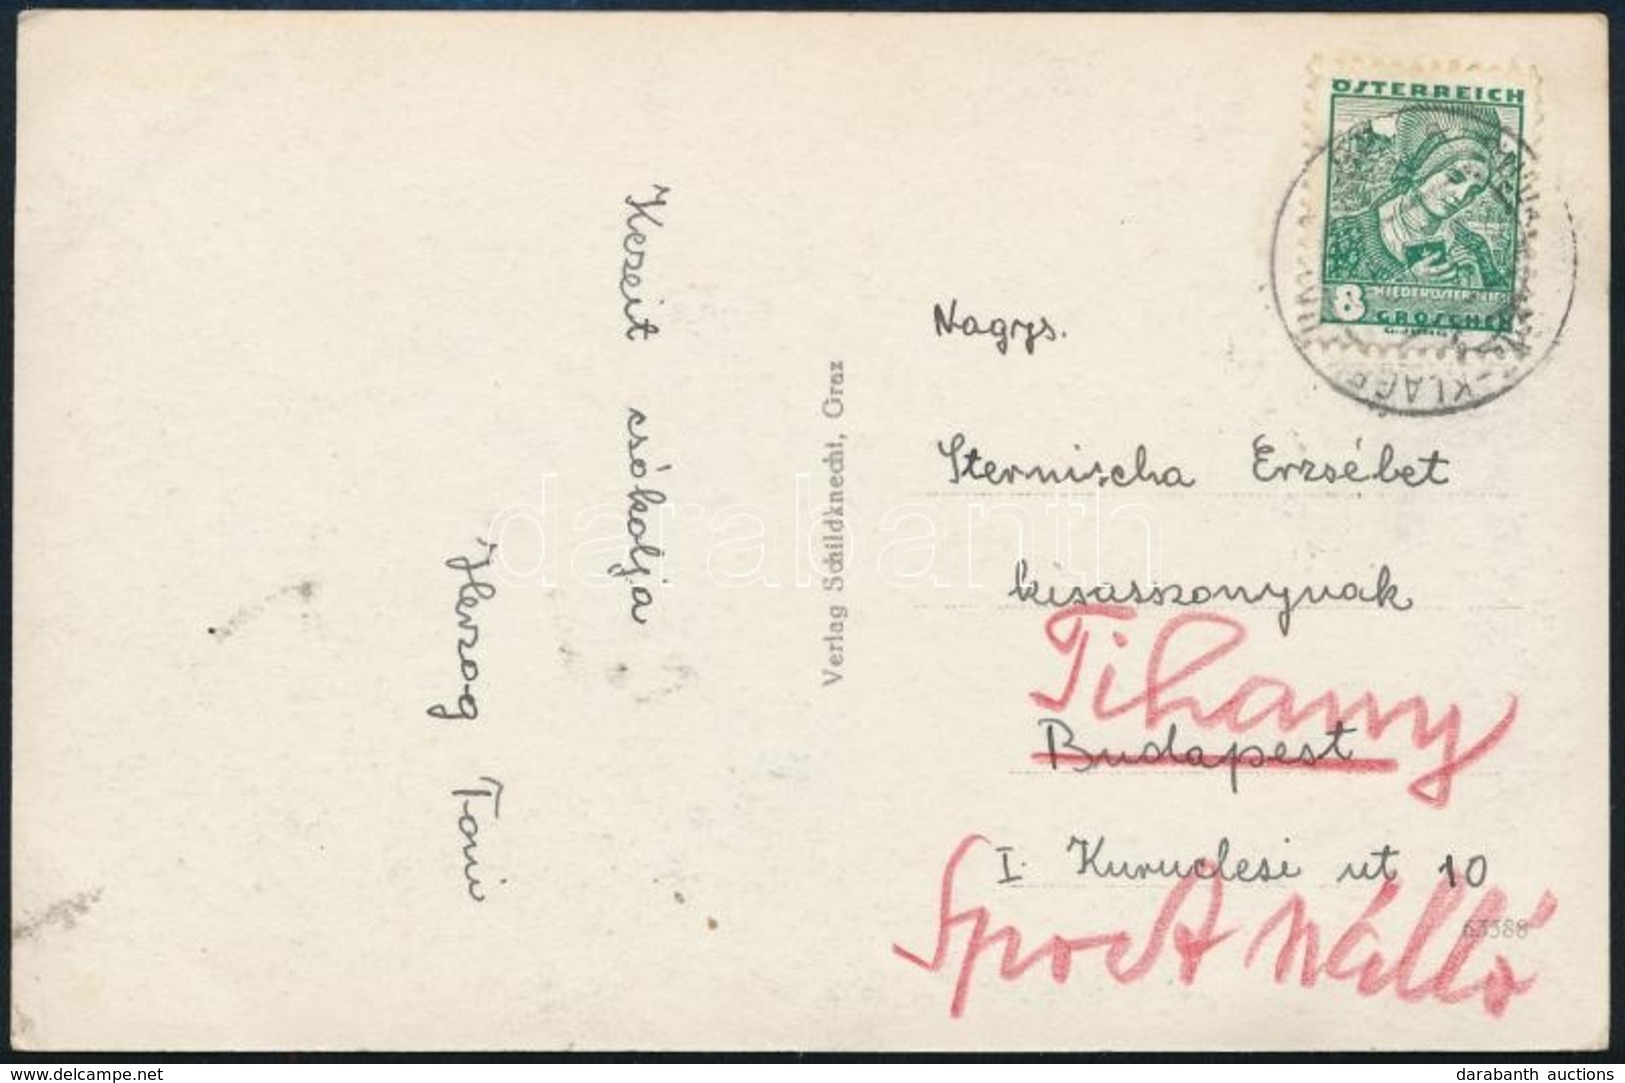 Kezeit csókolja
Herzog Toni
Verlag Schildknecht, Graz
ÖSTERREICH
8
NIEDERÖSTERREICH
GROSCHEN
Nagys.
Sternischa Erzsébet
kisasszonynak
Tihany
Budapest
I. Kuruclesi ut 10
Sport
63588
darabanth
www.delcampe.net
darabanth auctions